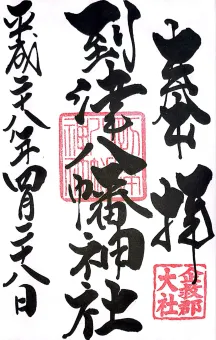 奉拝
到津八幡神社
平成二十八年四月二十八日
企救郡
大社